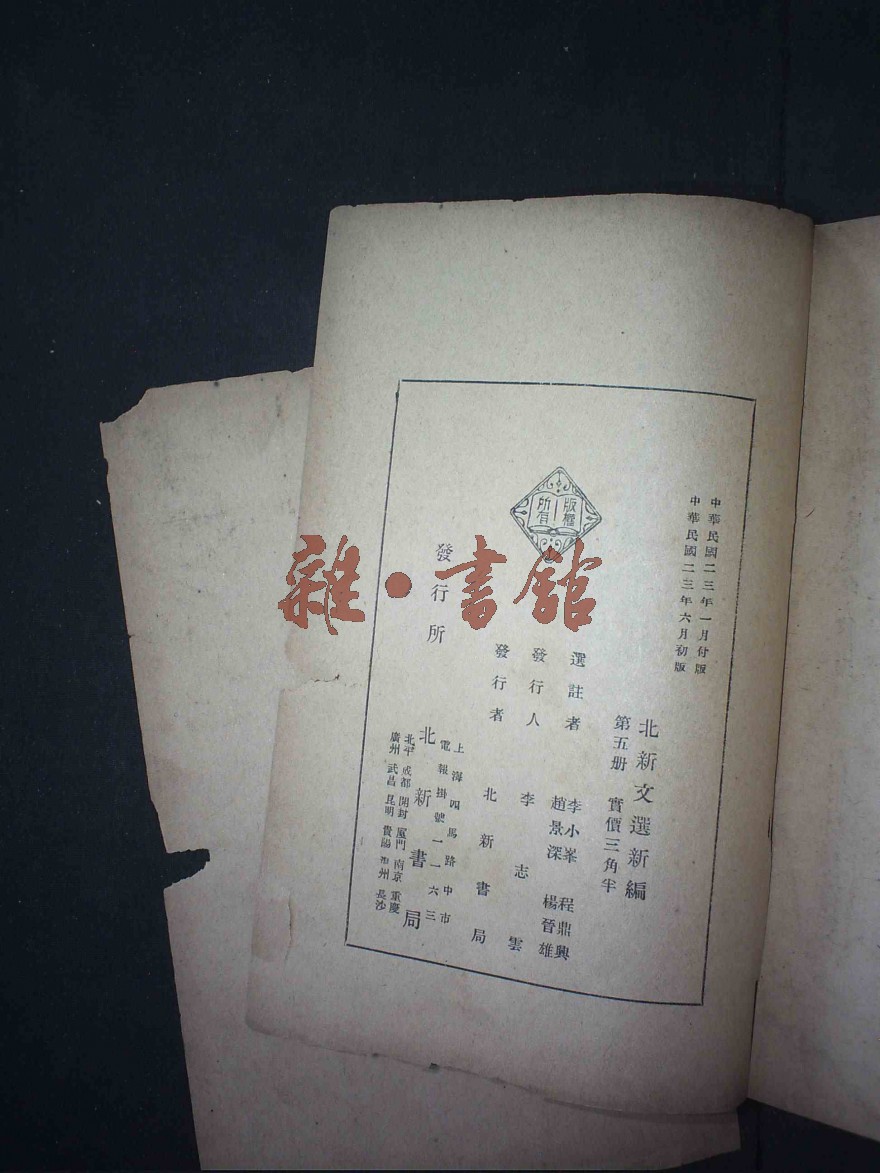 中華民國二三年一月付版
中華民國二三年六月初版
北新文選新編
第五册 實價三角半
版權
所有
選註者 李小峯 程鼎興
趙景深 楊晉雄
發行人 李志雲
發行者 北新書局
發行所
上海四馬路中市
電報掛號一一六三
北新書局
北平 成都 開封 厦門 南京 重慶
廣州 武昌 昆明 貴陽 長沙
雜·書館